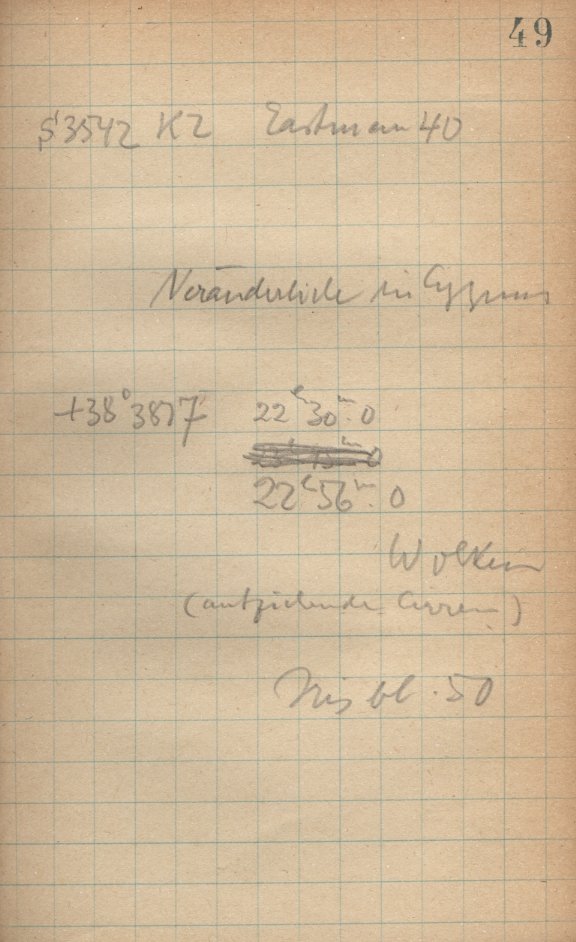 49
S 3542 K2 Eastman 40
Veränderliche in Cygnus
+38° 3817 22h 30m.0
22h 56m. 0
Wolken
(aufziehende Cirren)
Iris bl. 50